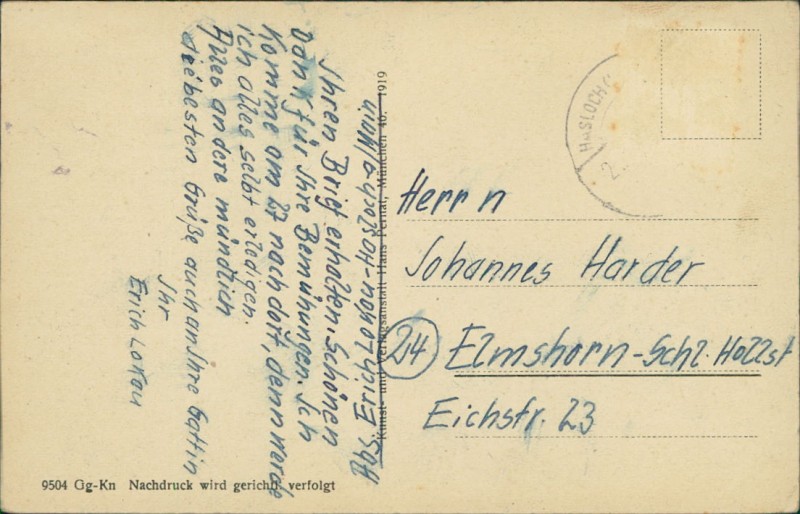 Abs. Erich Lokau - Hasloch a/Main
Ihren Brief erhalten. Schönen
Dank für Ihre Bemühungen. Ich
Komme am 27 nach dort, dann werde
ich alles selbt erledigen.
Alles andere mündlich
die besten Grüße auch an Ihre Gattin
Ihr
Erich Lokau
Kunst- und Verlagsanstalt Hans Pernat, München 46. 1919
HASLOCH
2
Herrn
Johannes Harder
24 Elmshorn - Schl. Hollst
Eichstr. 23
9504 Gg-Kn Nachdruck wird gerichtl. verfolgt